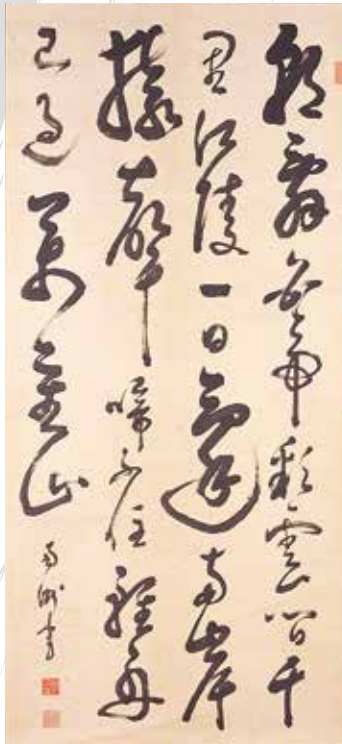 朝辭白帝彩雲間千
里江陵一日還兩岸
猿聲啼不住輕舟
已過萬重山
南洲書